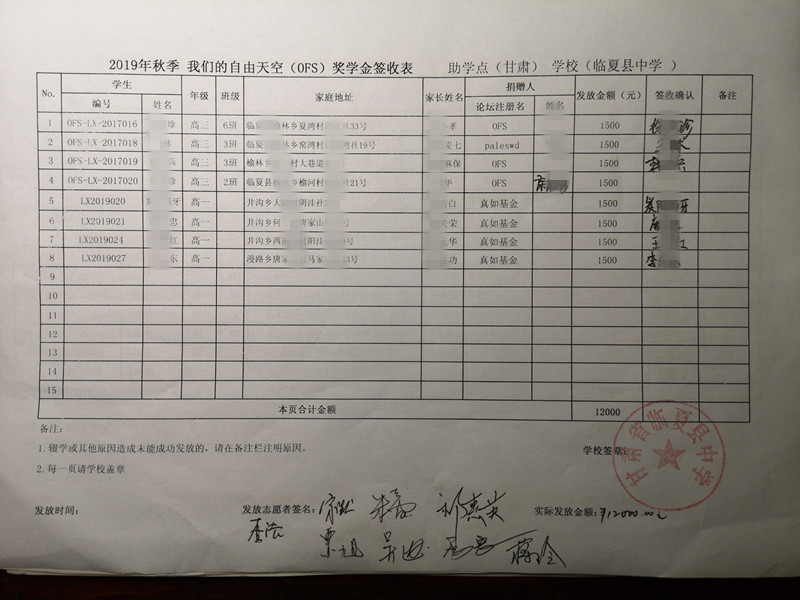 2019年秋季 我们的自由天空（OFS）奖学金签收表 助学点（甘肃） 学校（临夏县中学 ）
No. 学生 年级 班级 家庭地址 家长姓名 捐赠人 发放金额（元） 签收确认 备注
编号 姓名 论坛注册名 姓名
1 OFS-LX-2017016 珍 高三 6班 临夏 榆林乡夏湾村 社33号 孝 OFS 1500
2 OFS-LX-2017018 林 高三 3班 临夏 榆林乡窑湾村 湾社19号 安七 paleswd 1500
3 OFS-LX-2017019 兵 高三 3班 榆林乡 村人巷道 麻保 OFS 1500
4 OFS-LX-2017020 珍 高三 2班 临夏县 乡榆河村 社21号 华 OFS 1500
5 LX2019020 牙 高一 井沟乡大 阴洼社 古白 真如基金 1500
6 LX2019021 忠 高一 井沟乡何 唐家山 号 荣 真如基金 1500
7 LX2019024 红 高一 井沟乡西 村阳洼 号 华 真如基金 1500
8 LX2019027 东 高一 漫路乡唐家 马家 3号 功 真如基金 1500
9
10
11
12
13
14
15
本页合计金额 12000
备注：
1. 辍学或其他原因造成未能成功发放的，请在备注栏注明原因。
学校签章：
2. 每一页请学校盖章
甘肃省临夏县中学
发放时间： 发放志愿者签名： 实际发放金额：¥12000.00元